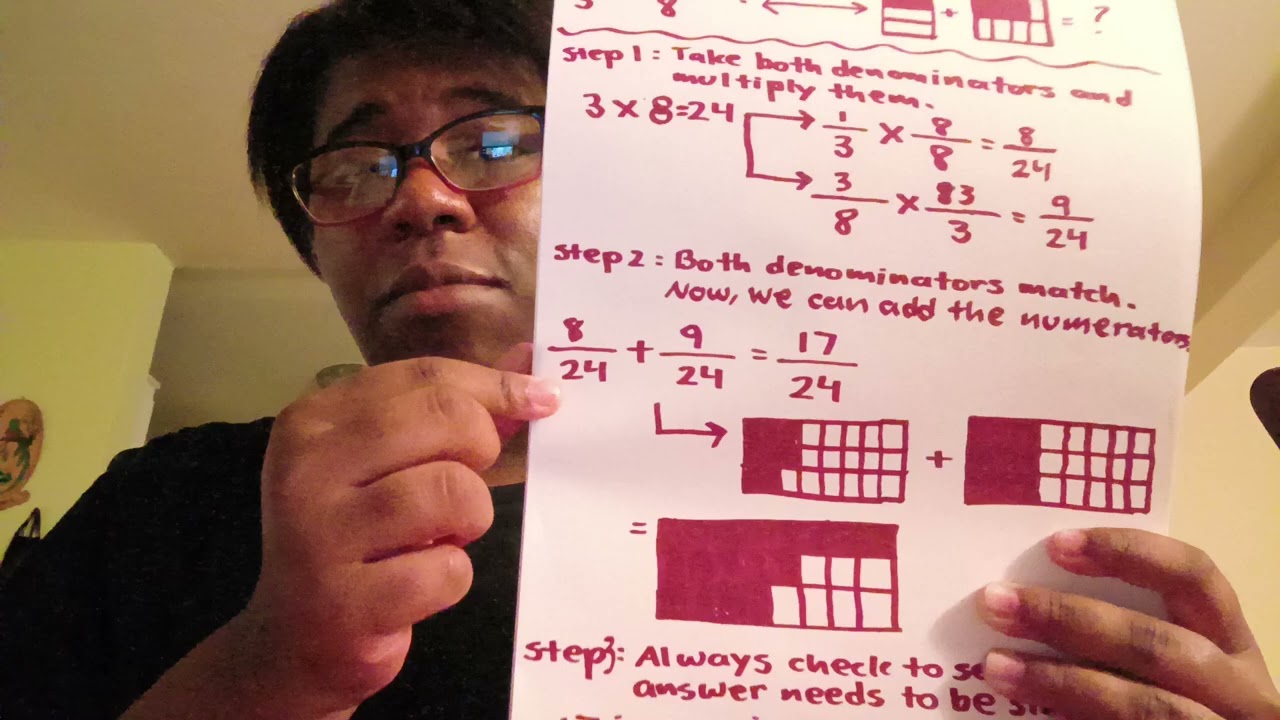 3 8 + = ?
step 1: Take both denominators and
multiply them.
3 x 8=24 1/3 x 8/8 = 8/24
3/8 x 83/3 = 9/24
step 2: Both denominators match.
Now, we can add the numerators.
8/24 + 9/24 = 17/24
+
=
step 3: Always check to
answer needs to be